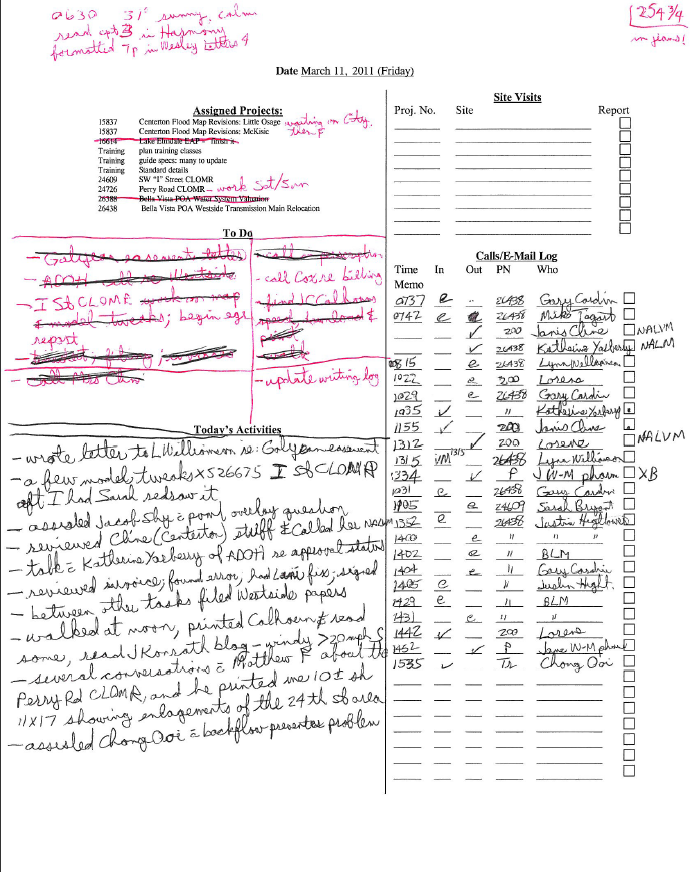 0630 31° sunny, calm
read cpt 3 in Harmony
formatted 7p in Wesley Letters 4
254 3/4
in jeans!
Date March 11, 2011 (Friday)
Assigned Projects:
15837 Centerton Flood Map Revisions: Little Osage waiting on City,
15837 Centerton Flood Map Revisions: McKisic then F
16614 Lake Elmdale EAP - finish it
Training plan training classes
Training guide specs: many to update
Training Standard details
24609 SW "I" Street CLOMR
24726 Perry Road CLOMR – work Sat/Sun
26388 Bella Vista POA Water System Valuation
26438 Bella Vista POA Westside Transmission Main Relocation
To Do
- Galyean easement letter
- ADOH call re Westside
- I St CLOMR work on map
& model tweaks; begin egr
report
- call
- call Corine billing
- find JC Calhoun
speech, download &
print
- update writing log
Today's Activities
- wrote letter to L Williamson re: Galyean easement
- a few model tweaks XS 26675 I St CLOMR
aft I had Sarah redraw it
- assisted Jacob Shy = pomt overlay question
- reviewed Cline (Centerton) stuff & called her NALVM
- talk = Katherine Yarberry of ADOH re approval status
- reviewed invoice; found error, had Lani fix; signed
- between other tasks filed Westside papers
- walked at noon, printed Calhoun & read
some, read J Konrath blog - windy >20mph S
- several conversations = Matthew F about the
Perry Rd CLOMR, and he printed me 10± sh
11x17 showing enlagements of the 24th St area
- assisted Chong Ooi = backflow preventer problem
Site Visits
Proj. No. Site Report
Calls/E-Mail Log
Time In Out PN Who
Memo
0737 e 26438 Gary Cardin
0742 e 26438 Mike Tagart
✓ 200 Janis Cline NALVM
✓ 26438 Katherine Yarberry NALM
0815 e 26438 Lynn Williamson
1022 e 200 Lorene
1029 e 26438 Gary Cardin
1035 ✓ " Katherine Yarberry
1155 ✓ 200 Janis Cline
1312 ✓ 200 Lorene NALVM
1315 VM 1315 26438 Lynn Williamson
1334 ✓ P J W-M pharm XB
1031 e 26438 Gary Cardin
1105 e 24609 Sarah Bryant
1352 e 26438 Justin Hightower
1400 e " " "
1402 e " BLM
1404 e " Gary Cardin
1405 e " Justin Hight.
1429 e " BLM
1431 e " "
1442 ✓ 200 Lorene
1452 ✓ P Jane W-M pharm
1535 ✓ Tr Chong Ooi